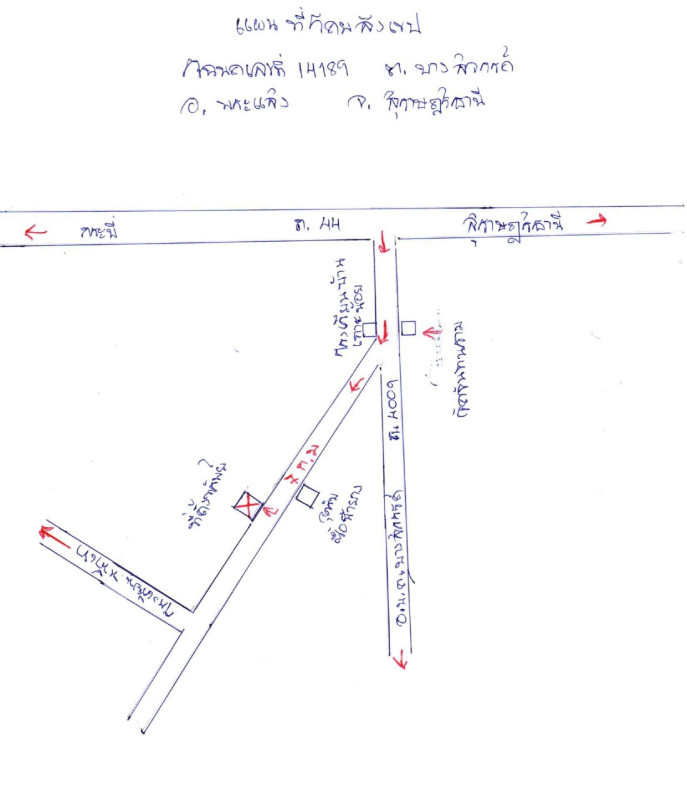 แผนที่ที่ดินสังเขป
โฉนดเลขที่ 14189 ต. บางสวรรค์
อ. พระแสง จ. สุราษฎร์ธานี
กระบี่
ถ. 44
สุราษฎร์ธานี
โรงเรียนบ้าน
เกาะน้อย
ถ. 4009
4 ก.ม
ที่ตั้งทรัพย์
จุดรับ
ซื้อน้ำยาง
อ.บ.ต. บางสวรรค์